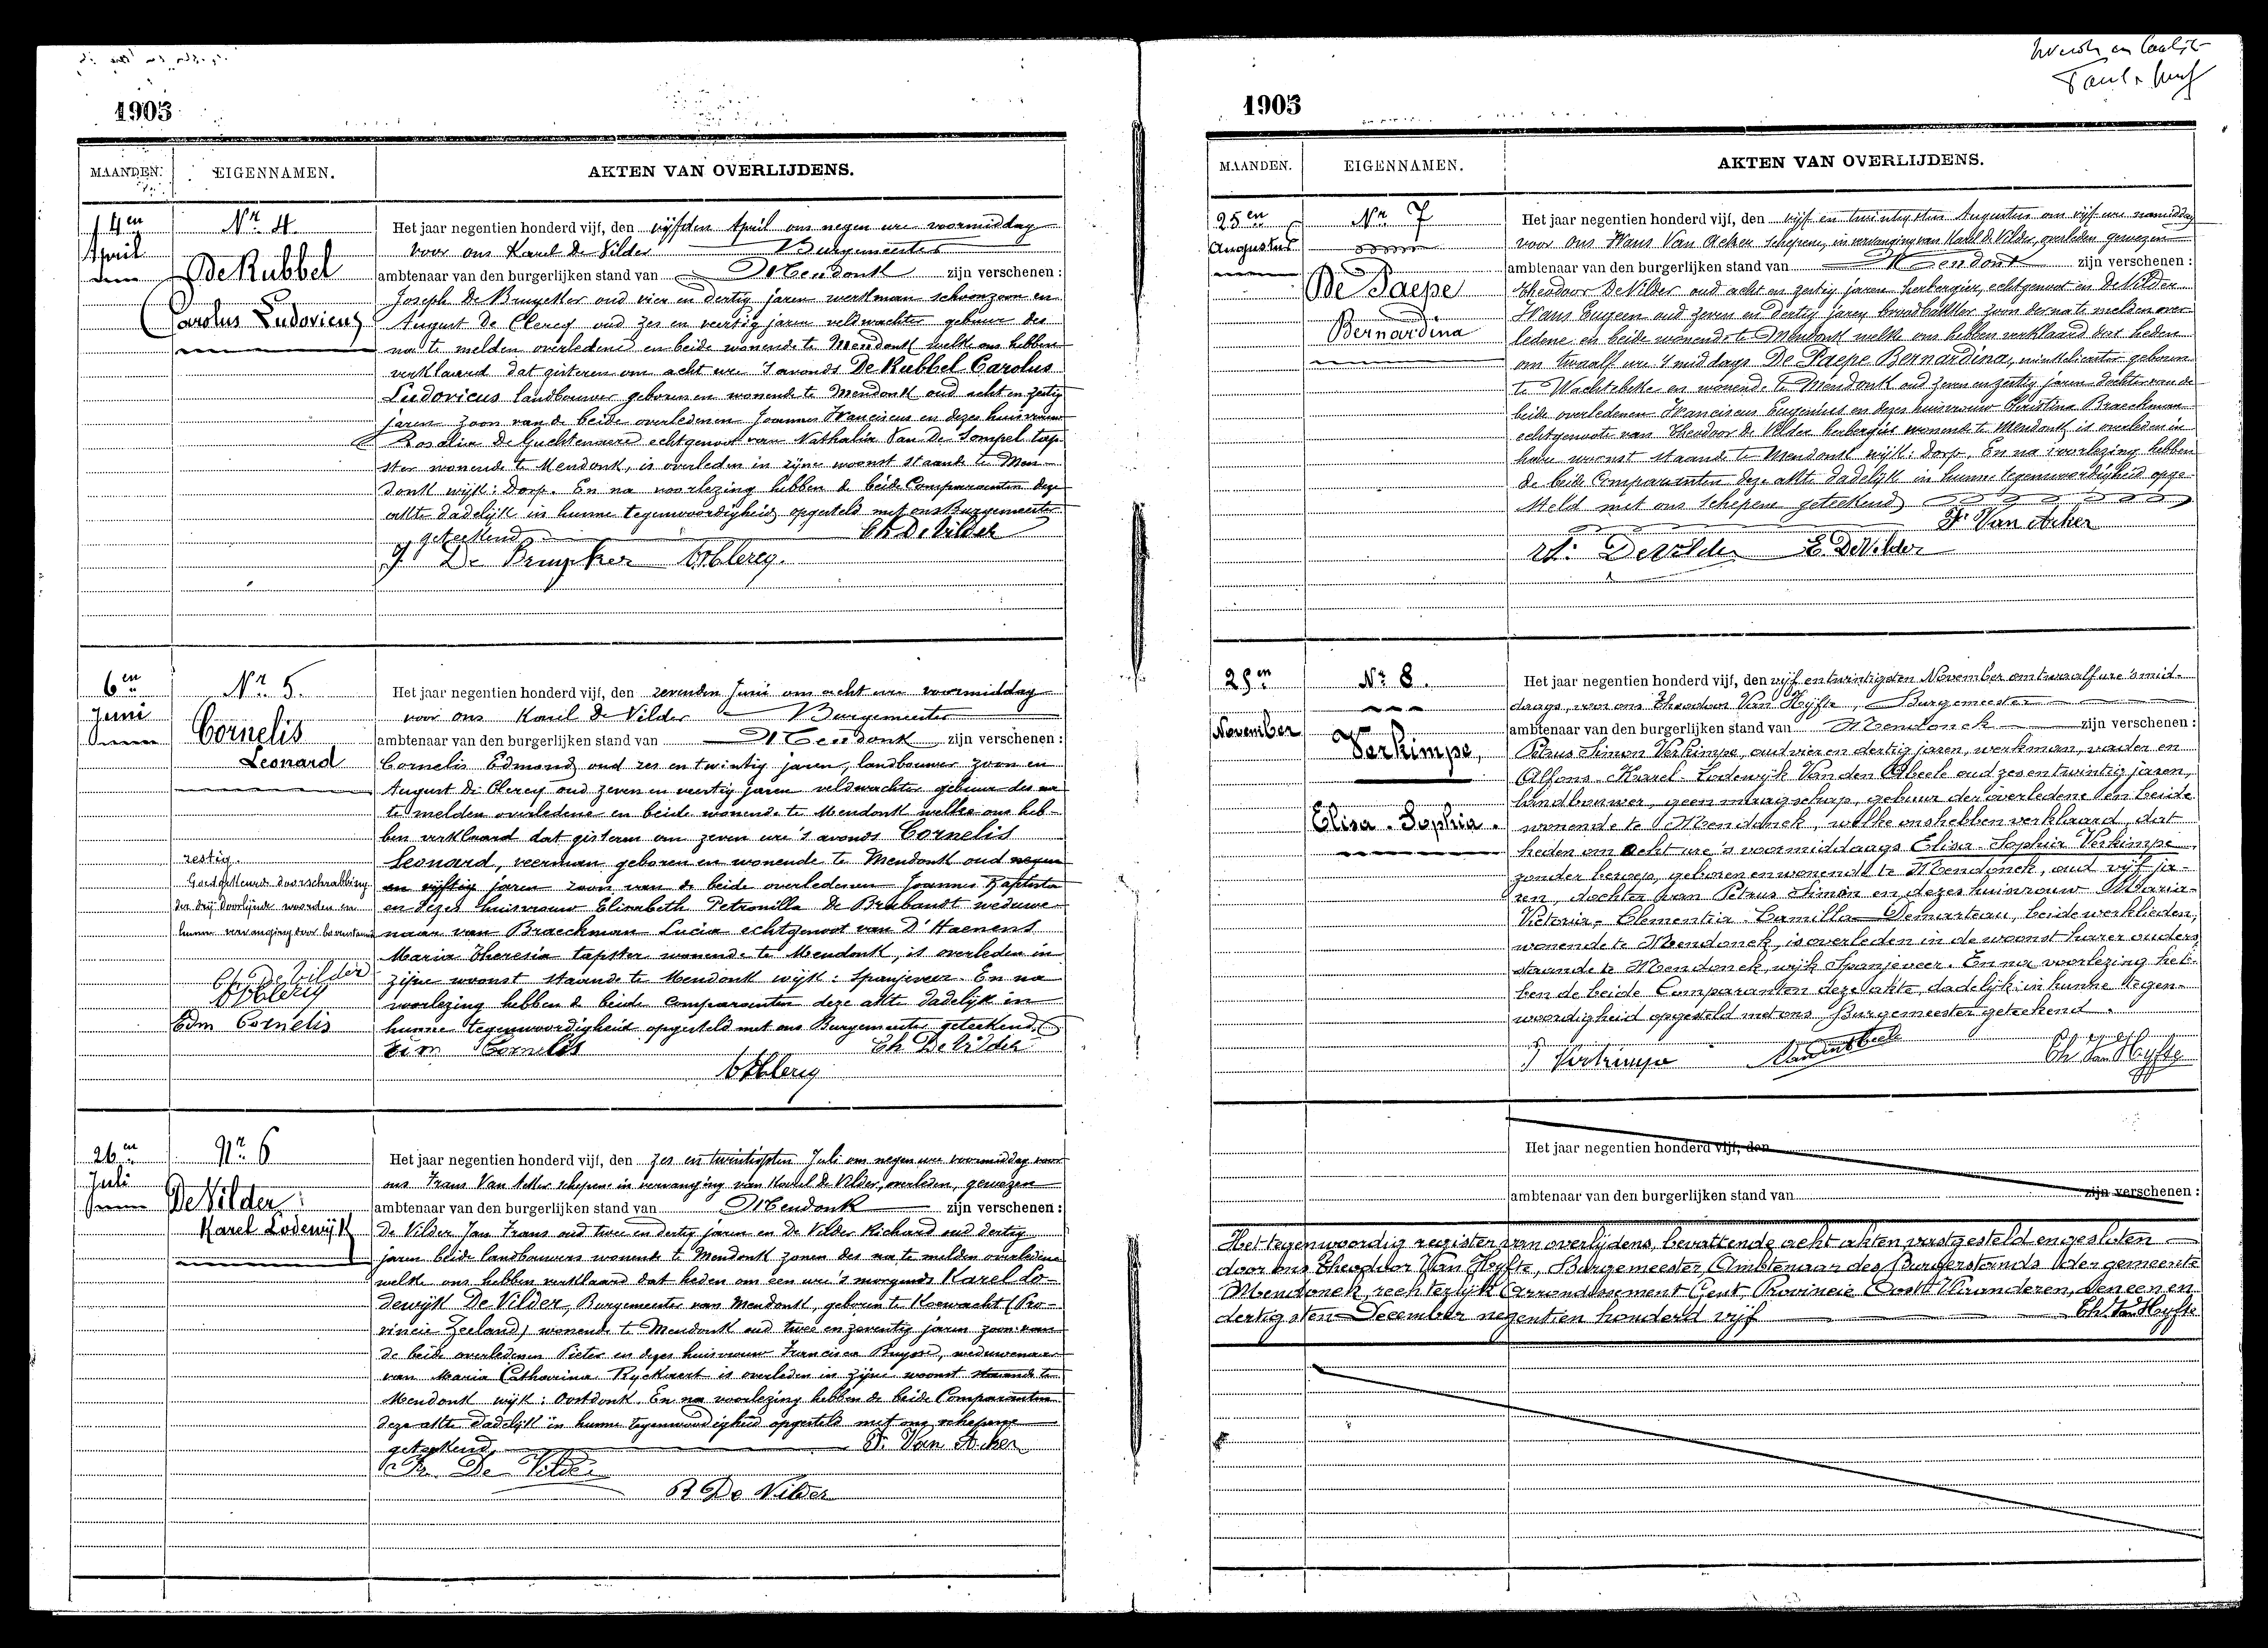 1905
MAANDEN. EIGENNAMEN. AKTEN VAN OVERLIJDENS.
14en
April
Nr. 4.
De Rubbel
Carolus Ludovicus
Het jaar negentien honderd vijf, den vijfden April om negen ure voormiddag
voor ons Karel De Vilder Burgemeester
ambtenaar van den burgerlijken stand van Mendonk zijn verschenen :
Joseph De Bruycker oud vier en dertig jaren werkman schoonzoon en
August De Clercq oud zes en veertig jaren veldwachter gebuur des
na te melden overledene en beide wonende te Mendonk welke ons hebben
verklaard dat gisteren om acht ure 's avonds De Rubbel Carolus
Ludovicus landbouwer geboren en wonende te Mendonk oud acht en zestig
jaren zoon van de beide overledenen Joannes Franciscus en dezes huisvrouw
Rosalia De Guchtenaere echtgenoot van Nathalia Van De Sompel tap-
ster wonende te Mendonk, is overleden in zijne woonst staande te Men-
donk wijk: Dorp. En na voorlezing hebben de beide Comparanten deze
akte dadelijk in hunne tegenwoordigheid opgesteld met ons Burgemeester
geteekend Ch De Vilder
J. De Bruycker A De Clercq.
6en
Juni
Nr. 5.
Cornelis
Leonard
Het jaar negentien honderd vijf, den zevenden Juni om acht ure voormiddag
voor ons Karel De Vilder Burgemeester
ambtenaar van den burgerlijken stand van Mendonk zijn verschenen :
Cornelis Edmond oud zes en twintig jaren, landbouwer zoon en
August De Clercq oud zeven en veertig jaren veldwachter gebuur des na
te melden overledene en beide wonende te Mendonk welke ons heb-
ben verklaard dat gisteren om zeven ure 's avonds Cornelis
Leonard, veerman geboren en wonende te Mendonk oud negen
en vijftig jaren zoon van de beide overledenen Joannes Baptista
en dezes huisvrouw Elisabeth Petronilla De Brabandt weduwe-
naar van Braeckman Lucia echtgenoot van D'Haenens
Maria Theresia tapster wonende te Mendonk, is overleden in
zijne woonst staande te Mendonk wijk: Spanjeveer. En na
voorlezing hebben de beide comparanten deze akte dadelijk in
hunne tegenwoordigheid opgesteld met ons Burgemeester geteekend.
Edm Cornelis Ch De Vilder
A De Clercq
zestig.
Goedgekeurd doorschrabbing
der drij doorlijnde woorden en
hunne vervanging door bovenstaand
Ch De Vilder
A De Clercq
Edm Cornelis
26en
Juli
Nr. 6
De Vilder
Karel Lodewijk
Het jaar negentien honderd vijf, den zes en twintigsten Juli om negen ure voormiddag voor
ons Frans Van Acker schepene in vervanging van Karel De Vilder, overleden, gewezen
ambtenaar van den burgerlijken stand van Mendonk zijn verschenen :
De Vilder Jan Frans oud twee en dertig jaren en De Vilder Richard oud dertig
jaren beide landbouwers wonende te Mendonk zonen des na te melden overledene
welke ons hebben verklaard dat heden om een ure 's morgends Karel Lo-
dewijk De Vilder, Burgemeester van Mendonk, geboren te Koewacht (Pro-
vincie Zeeland) wonende te Mendonk oud twee en zeventig jaren zoon van
de beide overledenen Pieter en dezes huisvrouw Francisca Buysse, weduwenaar
van Maria Catharina Ryckaert is overleden in zijne woonst staande te
Mendonk wijk: Oostdonk. En na voorlezing hebben de beide Comparanten
deze akte dadelijk in hunne tegenwoordigheid opgesteld met ons schepene
geteekend F. Van Acker
De Vilder
R De Vilder
1905
MAANDEN. EIGENNAMEN. AKTEN VAN OVERLIJDENS.
25en
Augustus
Nr. 7
De Paepe
Bernardina
Het jaar negentien honderd vijf, den vijf en twintigsten Augustus om vijf ure namiddag
voor ons Frans Van Acker schepene, in vervanging van Karel De Vilder, overleden gewezen
ambtenaar van den burgerlijken stand van Mendonk zijn verschenen :
Theodoor De Vilder oud acht en zestig jaren herbergier, echtgenoot en De Vilder
Frans Eugeen oud zeven en dertig jaren broodbakker zoon der na te melden over-
ledene en beide wonende te Mendonk welke ons hebben verklaard dat heden
om twaalf ure 's middags De Paepe Bernardina, winkelierster geboren
te Wachtebeke en wonende te Mendonk oud zeven en zestig jaren dochter van de
beide overledenen Franciscus Eugenius en dezes huisvrouw Christina Braeckman
echtgenoote van Theodoor De Vilder herbergier wonende te Mendonk is overleden in
hare woonst staande te Mendonk wijk: Dorp. En na voorlezing hebben
de beide Comparanten deze akte dadelijk in hunne tegenwoordigheid opge-
steld met ons Schepene geteekend
F. Van Acker
De Vilder E. De Vilder
25en
November
Nr. 8.
Verkimpe,
Elisa-Sophia.
Het jaar negentien honderd vijf, den vijf en twintigsten November om twaalf ure 's mid-
daags, voor ons Theodoor Van Hijfte, Burgemeester
ambtenaar van den burgerlijken stand van Mendonck zijn verschenen :
Petrus Simon Verkimpe, oud vier en dertig jaren, werkman, vader en
Alfons-Karel-Lodewijk Van den Abeele oud zes en twintig jaren,
landbouwer, geen maagschap, gebuur der overledene en beide
wonende te Mendonck, welke ons hebben verklaard, dat
heden om acht ure 's voormiddaags Elisa-Sophia Verkimpe
zonder beroep, geboren en wonende te Mendonck, oud vijf ja-
ren, dochter van Petrus Simon en dezes huisvrouw Maria-
Victoria-Clementia-Camilla Demarteau, beide werklieden,
wonende te Mendonck, is overleden in de woonst harer ouders,
staande te Mendonck, wijk Spanjeveer. En na voorlezing heb-
ben de beide Comparanten deze akte, dadelijk in hunne tegen-
woordigheid opgesteld met ons Burgemeester geteekend.
P Verkimpe Ch Van Hyfte
Het jaar negentien honderd vijf, den
ambtenaar van den burgerlijken stand van zijn verschenen :
Het tegenwoordig register van overlijdens, bevattende acht akten vastgesteld en gesloten
door ons Theodoor Van Hijfte, Burgemeester, Ambtenaar des Burgerstands der gemeente
Mendonck, rechterlijk Arrondissement Gent, Provincie Oost Vlaanderen, den een en
dertigsten December negentien honderd vijf Ch Van Hyfte